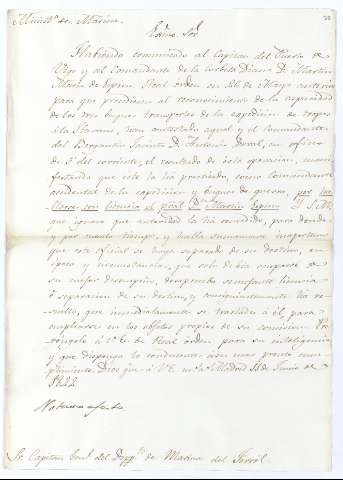 Minist.º de Marina.
Exmo. Sor.
Habiendo comunicado al Capitan del Puerto de
Vigo y al Comandante de la Corbeta Diana D. Martin
Maria de Espino Real orden en 26 de Mayo
para que procediesen al reconocimiento de la
de los tres buques transportes de la expedicion de tropas
á la Havana, han contestado aquel y el Comandante
del Bergantin Jacinto D. Antonio Doral, en oficios
de 5 del corriente, el resultado de esta operacion, mani-
festando que este la ha practicado, como Comandante
accidental de la expedicion y buques de guerra, por
con licencia el D.n Martin Espino. Y S.M.
que ignora que autoridad la ha concedido, para donde
y por cuanto tiempo, y halla sumamente inoportuno
que este oficial se haya separado de su destino, en
época y circunstancias, que solo debia ocuparse en
su mejor desempeño, desaprueba semejante licencia
ó separacion de su destino, y consiguientemente ha re-
suelto, que inmediatamente se traslade á él, para
emplearse en los objetos propios de su comision. De
Real orden para su inteligencia
y que disponga lo conducente á su mas pronto cum-
plimiento. Dios gue. á V.E. m.s a.s Madrid 11 de Junio de
1822.
Sr. Capitan Gral. del Depp.to de Marina del Ferrol.